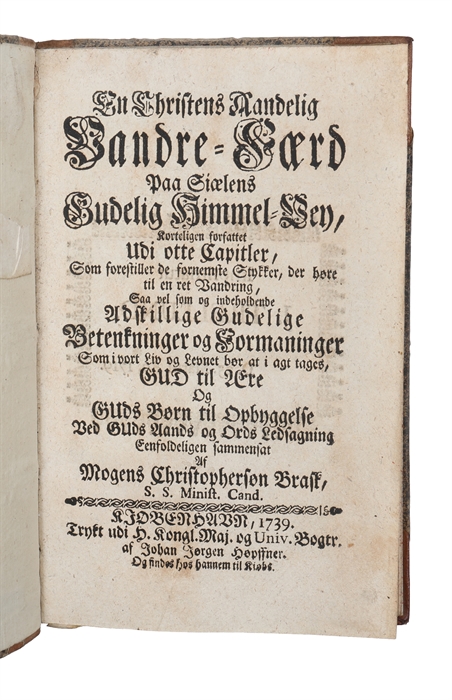 En Christens Aandelig
Vandre=Færd
Paa Siælens
Gudelig Himmel=Vey,
Korteligen forfattet
Udi otte Capitler,
Som forestiller de fornemste Stykker, der høre
til en ret Vandring,
Saa vel som og indeholdende
Adskillige Gudelige
Betenkninger og Formaninger
Som i vort Liv og Levnet bør at i agt tages,
GUD til Ære
Og
GUds Børn til Opbyggelse
Ved GUds Aands og Ords Ledsagning
Eenfoldeligen sammensat
Af
Mogens Christopherson Brask,
S. S. Minist. Cand.
KJØBENHAVN, 1739.
Trykt udi H. Kongl. Maj. og Univ. Bogtr.
af Johan Jørgen Høpffner.
Og findes hos hannem til Kiøbs.